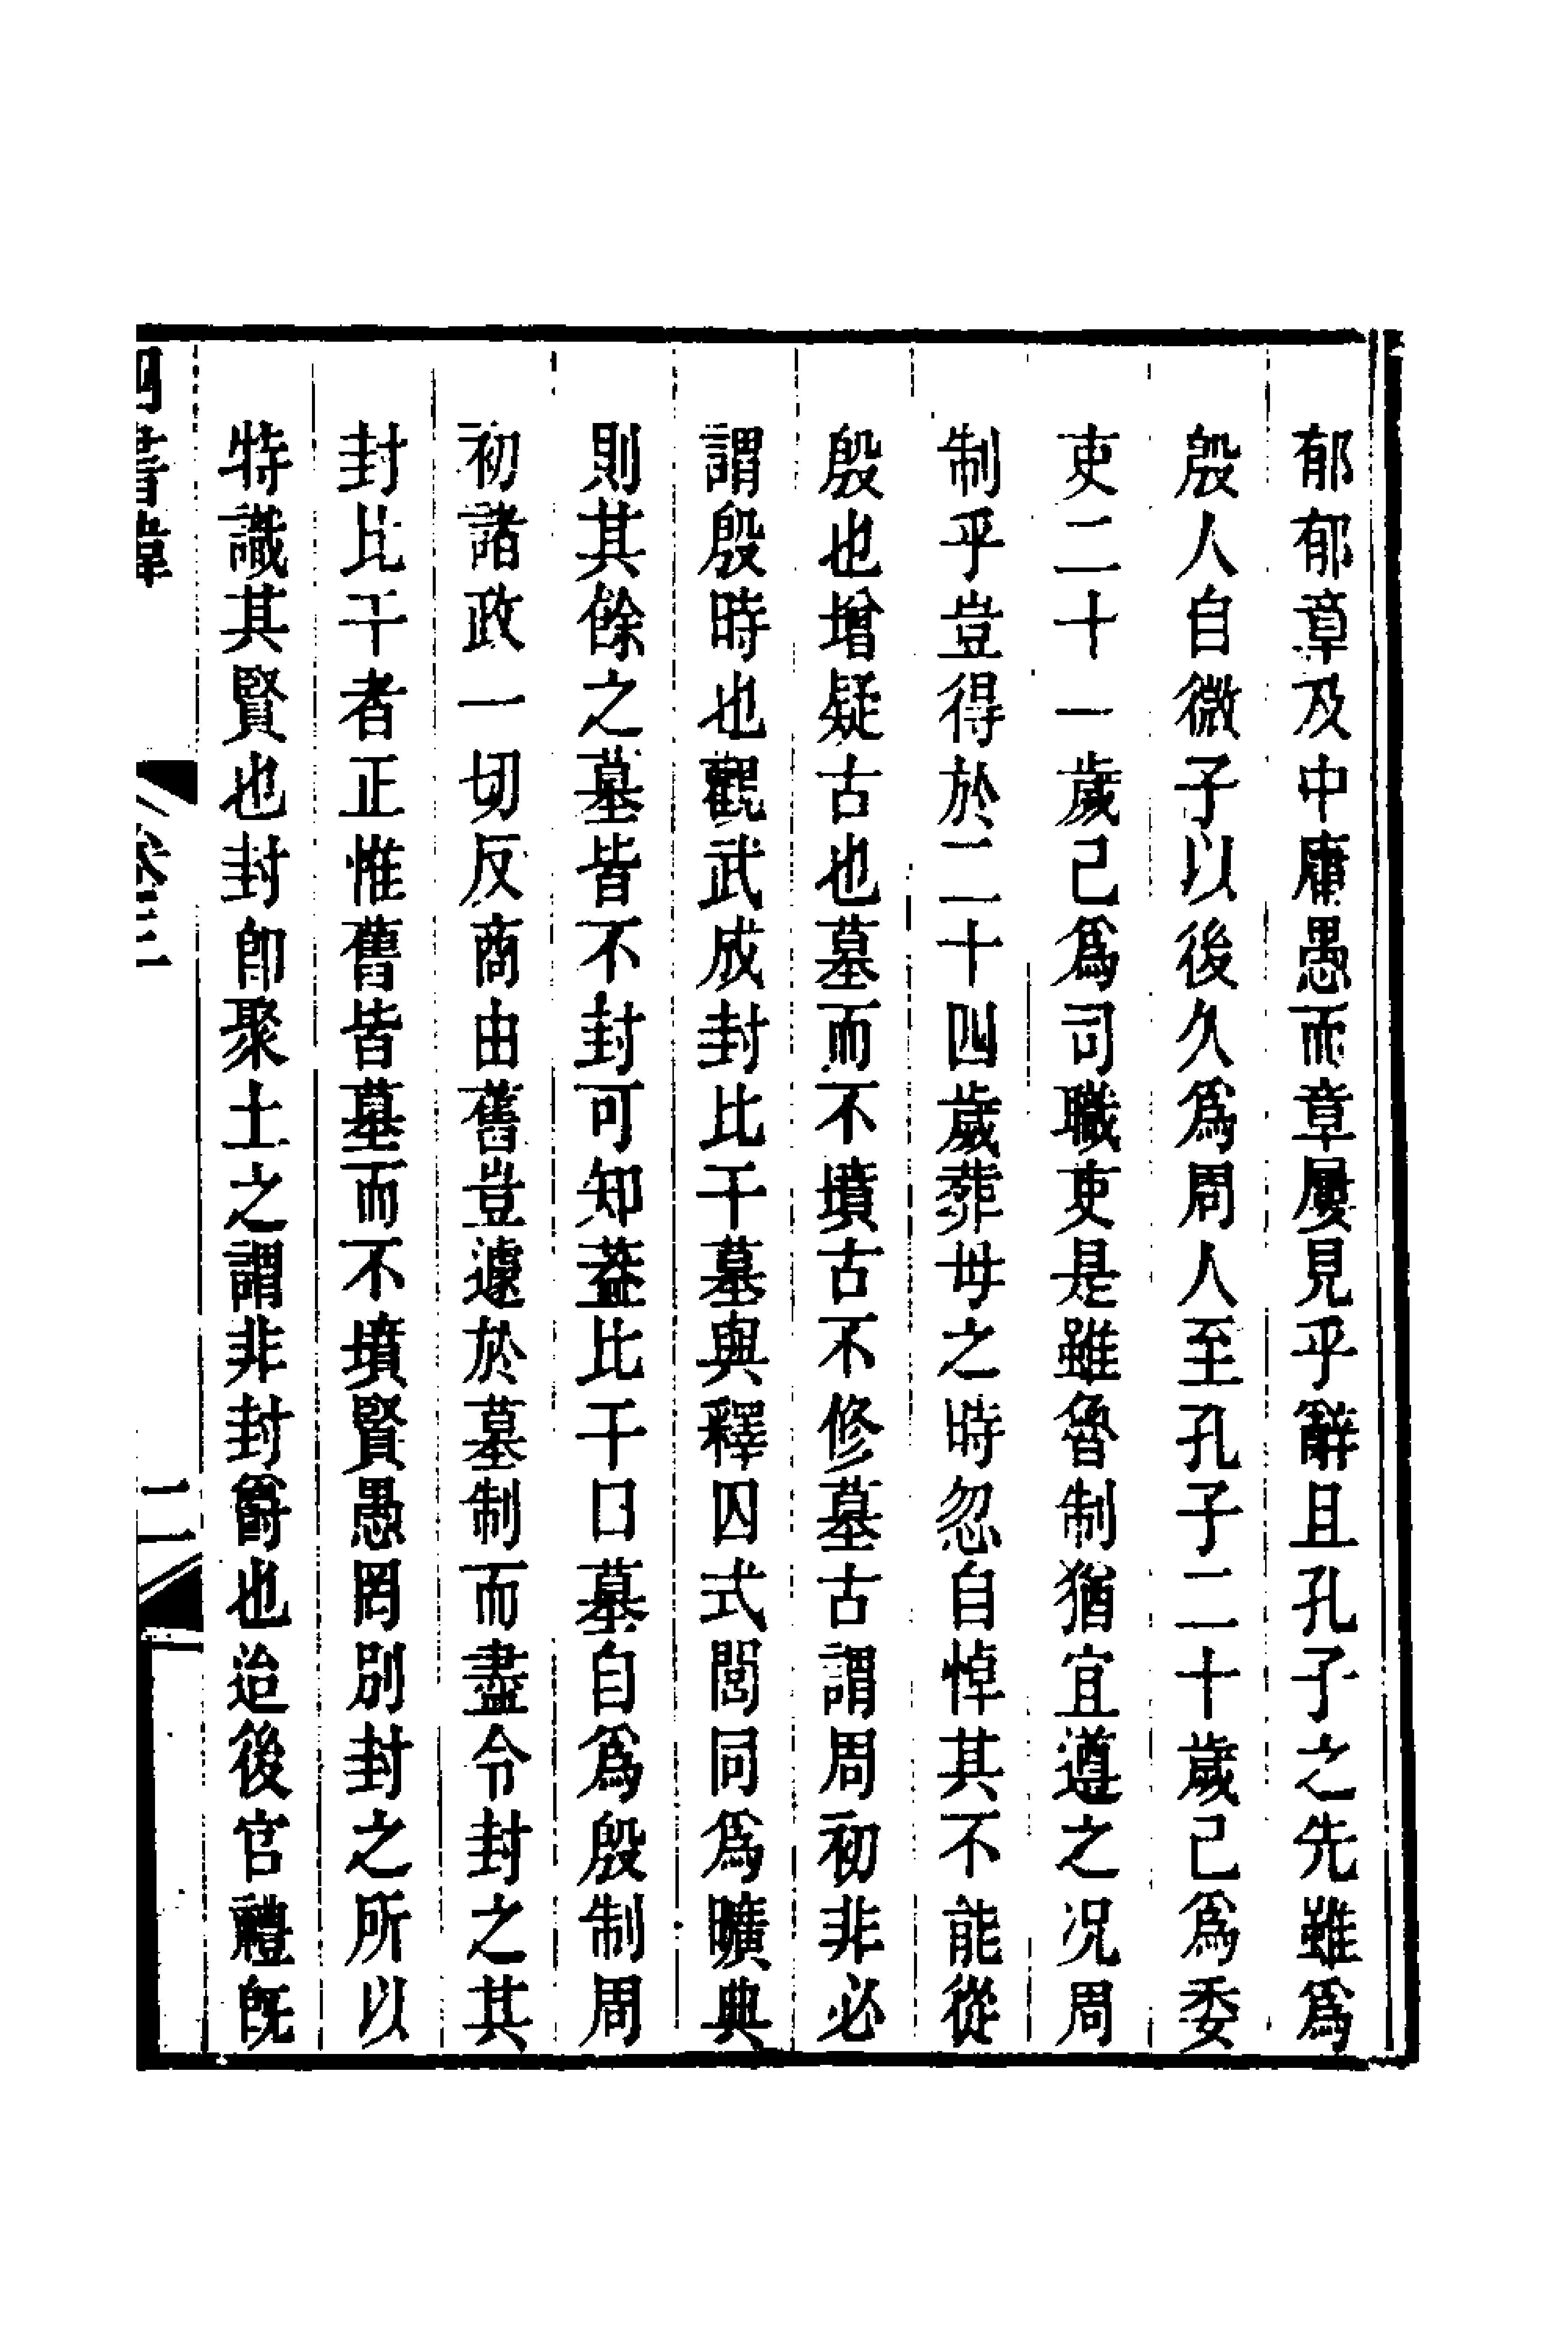 郁郁章及中庸愚而章屢見乎辭且孔子之先雖爲
殷人自微子以後久爲周人至孔子二十歲已爲委
吏二十一歲已爲司職吏是雖魯制猶宜遵之况周
制乎豈得於二十四歲葬母之時忽自悼其不能從
殷也增疑古也墓而不墳古不修墓古謂周初非必
謂殷時也觀武成封比干墓與釋囚式閭同爲曠典
則其餘之墓皆不封可知葢比干曰墓自爲殷制周
初諸政一切反商由舊豈遽於墓制而盡令封之其
封比干者正惟舊皆墓而不墳賢愚罔別封之所以
特識其賢也封卽聚土之謂非封爵也迨後官禮旣
四書緯 卷三 二